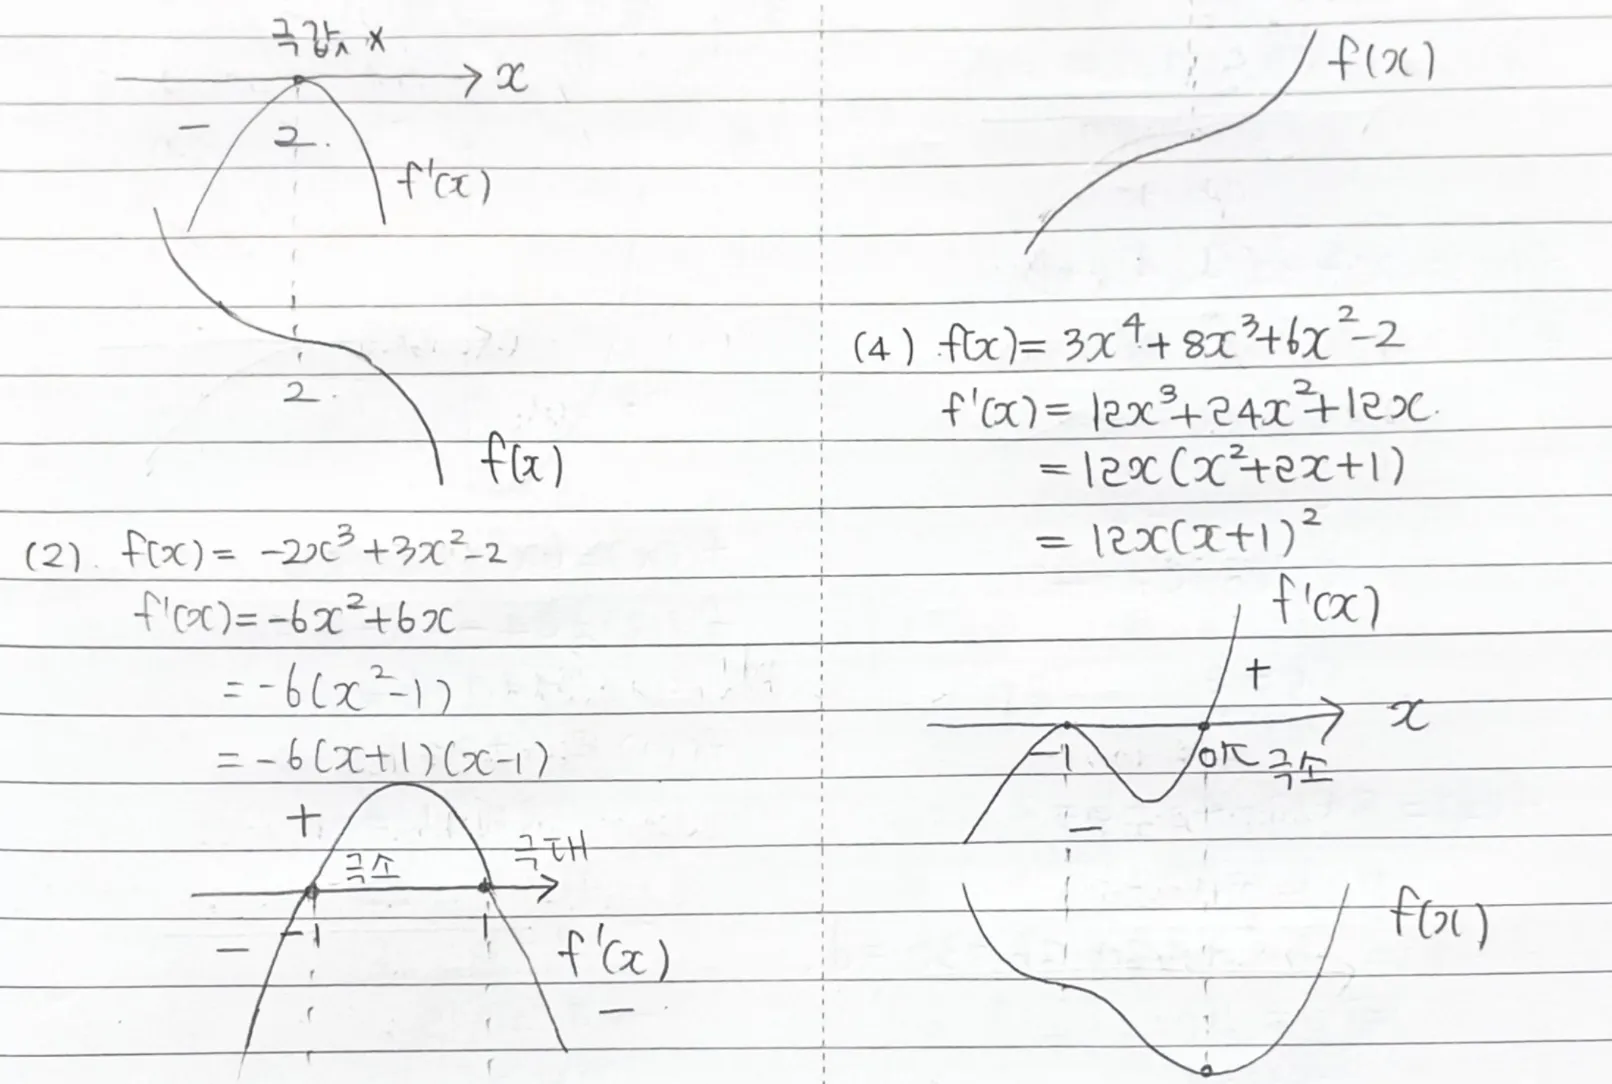 극값 x
x
-
2.
f'(x)
2.
f(x)
(2). f(x) = -2x³+3x²-2
f'(x) = -6x²+6x
= -6(x²-1)
= -6(x+1)(x-1)
+
극소
극대
-
-1
1
f'(x)
-
f(x)
(4) f(x) = 3x⁴+8x³+6x²-2
f'(x) = 12x³+24x²+12x.
= 12x(x²+2x+1)
= 12x(x+1)²
f'(x)
+
x
-1
극소
-
f(x)